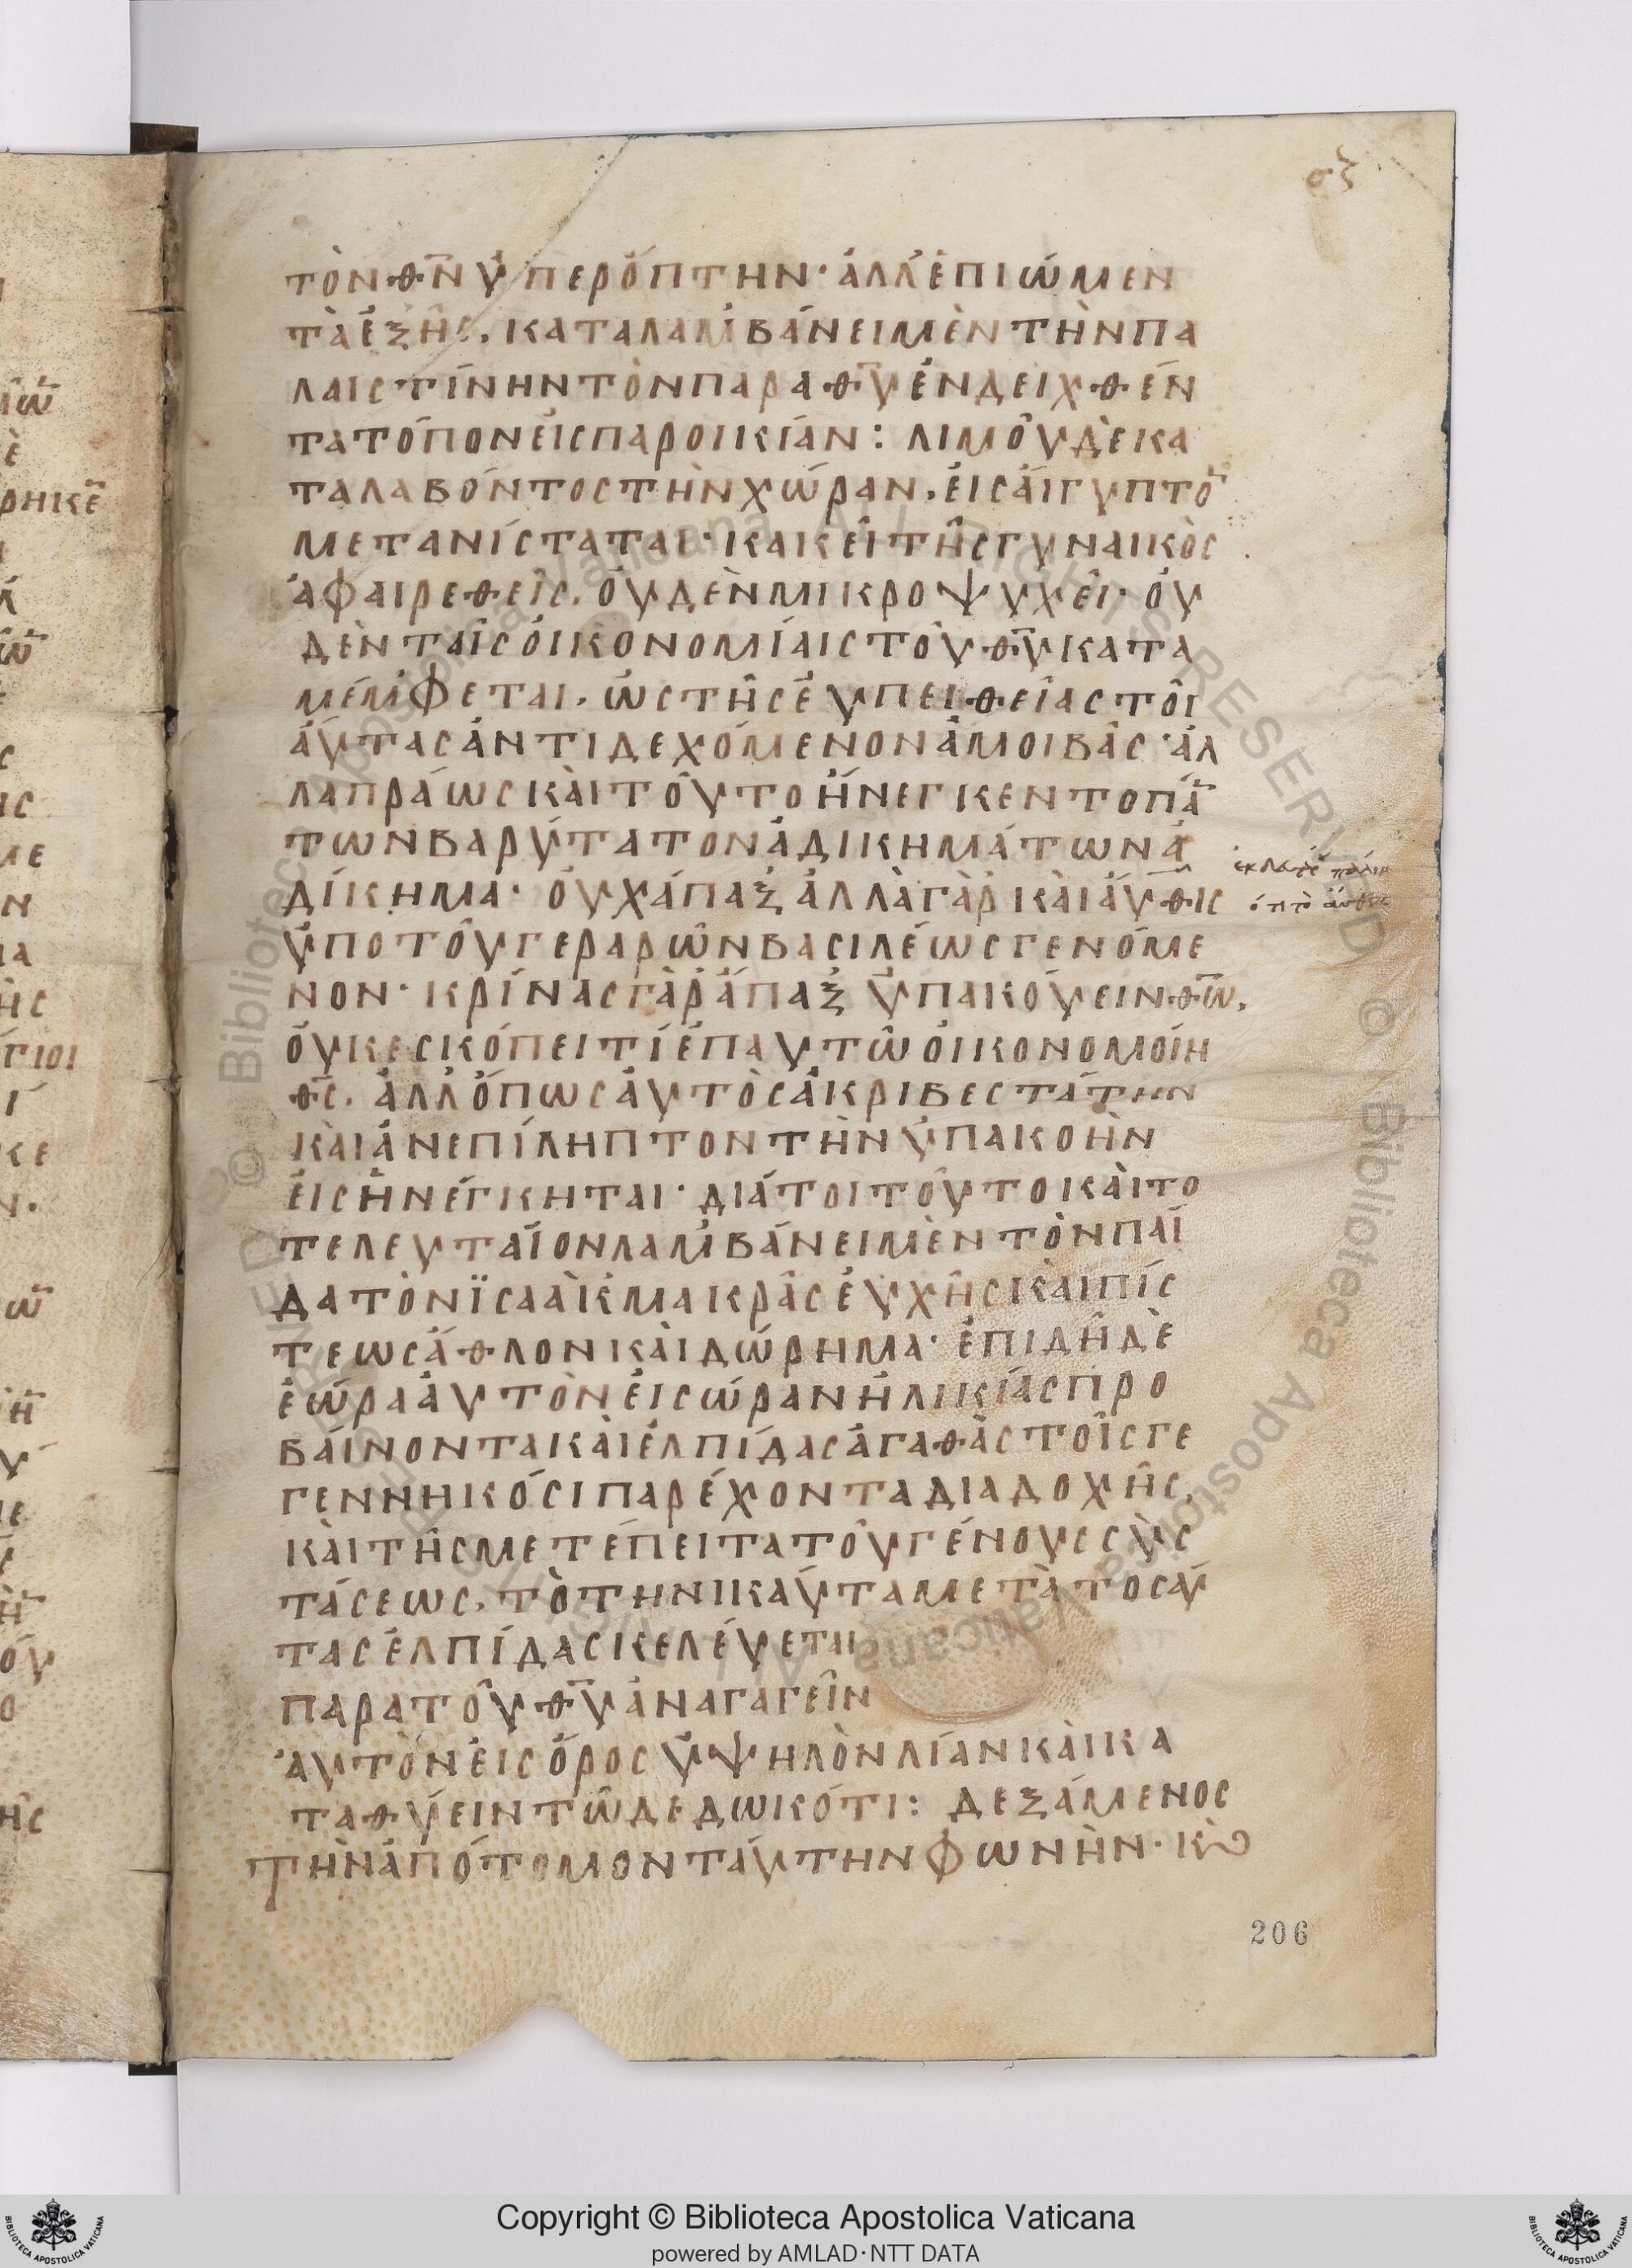 σζ
τὸνθ̅ν̅ὑπερόπτην· ἀλλ' ἐπιώμεν
τὰἑξῆς, καταλαμβάνειμὲντὴνπα
λαιστίνηντὸνπαραθ̅υ̅ἐνδειχθέν
τατόπονεἰςπαροικίαν: λιμοῦδὲκα
ταλαβόντοςτὴνχώραν, εἰςἄιγυπτο̅
μετανίσταται· κακεῖτῆςγυναικὸς
ἀφαιρεθεὶς, οὐδὲνμικροψυχεῖ· οὐ
δὲνταῖςὀικονομίαιςτοῦθ̅υ̅κατα
μέμφεται, ὡςτῆςἐυπειθείαςτοι
ἀύταςἀντιδεχόμενονἀμοιβὰς· ἀλ
λαπράωςκαὶτοῦτοἤνεγκεντοπά̅
τωνβαρύτατονἀδικημάτωνἀ
δίκημα· οὐχάπαξἀλλὰγὰρκαὶἀῦθις
ὑποτοῦγεραρῶνβασιλέωςγενόμε
νον· κρίναςγὰρἅπαξὑπακούεινθ̅ω̅,
οὐκεσκόπειτίἐπαυτῶοἰκονομοίη
θ̅ς̅, ἀλλ' ὅπωςἀυτὸςἀκριβεστάτην
καὶἀνεπίληπτοντὴνὑπακοὴν
εἰσηνέγκηται· διάτοιτοῦτοκαὶτο
τελευταῖονλαμβάνειμὲντὸνπαῖ
δατὸνϊσαὰκμακρᾶςἐυχῆςκαὶπίσ
τεωςἆθλονκαὶδώρημα· ἐπιδῆδὲ
ἑώραἀυτὸνεἰςώρανἡλικίαςπρο
βάινοντακαὶἐλπίδαςἀγαθὰςτοῖςγε
γεννηκόσιπαρέχονταδιαδοχῆς,
καὶτῆςμετέπειτατοῦγένουςσὺς
τάσεως, τὸτηνικαῦταμετὰτοσαύ
ταςἐλπίδαςκελέυεται
παρατοῦθ̅υ̅ἀναγαγεῖν
ἀυτὸνεἰςὄροςὑψηλὸνλίανκαὶκα
ταθύειντῶδεδωκότι: δεξάμενος
τὴνἀπότομονταύτηνφωνὴν· κὰι
206
Copyright © Biblioteca Apostolica Vaticana
powered by AMLAD·NTT DATA